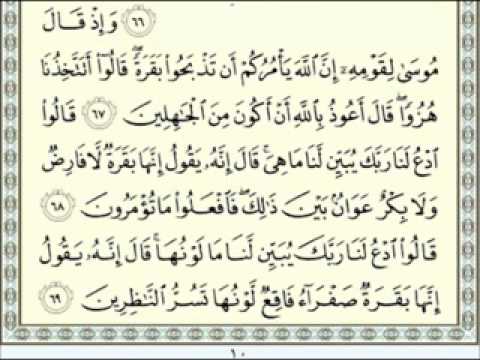 ٦٦ وَإِذْ قَالَ
مُوسَىٰ لِقَوْمِهِۦٓ إِنَّ ٱللَّهَ يَأْمُرُكُمْ أَن تَذْبَحُوا۟ بَقَرَةً ۖ قَالُوٓا۟ أَتَتَّخِذُنَا
هُزُوًا ۖ قَالَ أَعُوذُ بِٱللَّهِ أَنْ أَكُونَ مِنَ ٱلْجَٰهِلِينَ ٦٧ قَالُوا۟
ٱدْعُ لَنَا رَبَّكَ يُبَيِّن لَّنَا مَا هِىَ ۚ قَالَ إِنَّهُۥ يَقُولُ إِنَّهَا بَقَرَةٌ لَّا فَارِضٌ
وَلَا بِكْرٌ عَوَانٌۢ بَيْنَ ذَٰلِكَ ۖ فَٱفْعَلُوا۟ مَا تُؤْمَرُونَ ٦٨
قَالُوا۟ ٱدْعُ لَنَا رَبَّكَ يُبَيِّن لَّنَا مَا لَوْنُهَا ۚ قَالَ إِنَّهُۥ يَقُولُ
إِنَّهَا بَقَرَةٌ صَفْرَآءُ فَاقِعٌ لَّوْنُهَا تَسُرُّ ٱلنَّٰظِرِينَ ٦٩
١٠